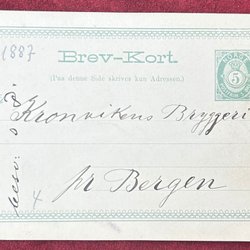 1887
Brev-Kort.
(Paa denne Side skrives kun Adressen.)
NORGE
5
Kronvikens Bryggeri
pr Bergen
4